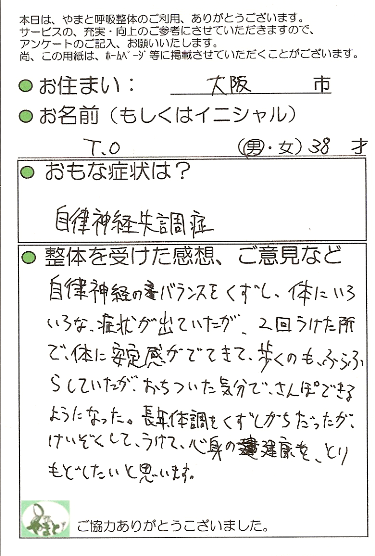 本日は、やまと呼吸整体のご利用、ありがとうございます。
サービスの、充実・向上のご参考にさせていただきますので、
アンケートのご記入、お願いいたします。
尚、この用紙は、ﾎｰﾑﾍﾟｰｼﾞ等に掲載させていただくことがございます。
お住まい： 大阪 市
お名前（もしくはイニシャル）
T.O （男・女）38 才
おもな症状は？
自律神経失調症
整体を受けた感想、ご意見など
自律神経のバランスをくずし、体にいろ
いろな、症状が出ていたが、2回うけた所
で、体に安定感がでてきて、歩くのも、ふらふ
らしていたが、おちついた気分で、さんぽできる
ようになった。長年体調をくずしがちだったが、
けいぞくして、うけて、心身の健康を、とり
もどしたいと思います。
やまと
ご協力ありがとうございました。